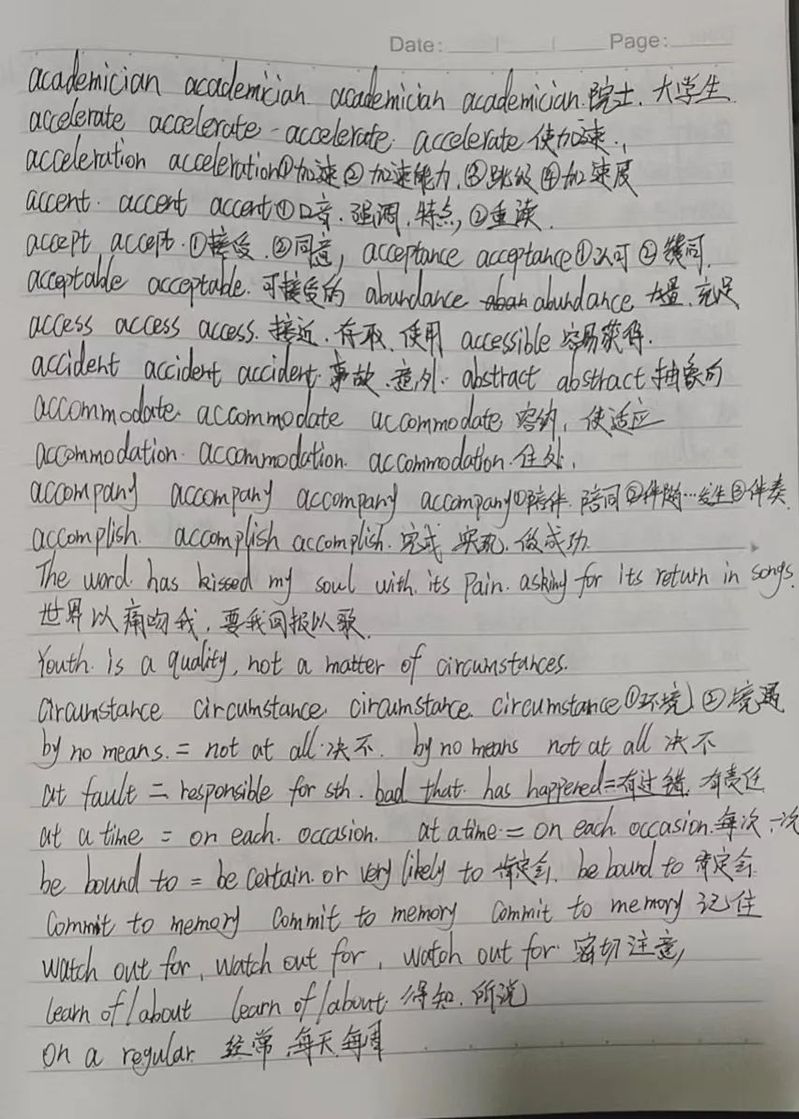 Date: Page:
academician academician academician academician. 院士. 大学生
accelerate accelerate - accelerate. accelerate 使加速.
acceleration acceleration①加速②加速能力.③跳级④加速度
accent. accent accent①口音.强调.特点,②重读.
accept accept.①接受.②同意, acceptance acceptance①认可②赞同.
acceptable acceptable. 可接受的 abundance abundance 大量.充足
access access access. 接近.存取.使用 accessible 容易获得.
accident accident accident. 事故.意外. abstract abstract 抽象的
accommodate. accommodate accommodate 容纳, 使适应
accommodation. accommodation. accommodation. 住处.
accompany accompany accompany accompany①陪伴.陪同②伴随…发生③伴奏
accomplish. accomplish accomplish. 完成 实现. 做成功.
The word has kissed my soul with its Pain. asking for its return in songs.
世界以痛吻我,要我回报以歌.
Youth is a quality, not a matter of circumstances.
circumstance circumstance circumstance. circumstance①环境②境遇
by no means. = not at all.决不. by no means not at all 决不
at fault = responsible for sth. bad that has happened=有过错. 有责任
at a time = on each. occasion. at a time = on each occasion.每次.一次
be bound to = be certain or very likely to 肯定会. be bound to 肯定会.
Commit to memory Commit to memory Commit to memory 记住
Watch out for, watch out for, watch out for 密切注意,
learn of/about learn of/about. 得知.所说
On a regular 经常.每天每周